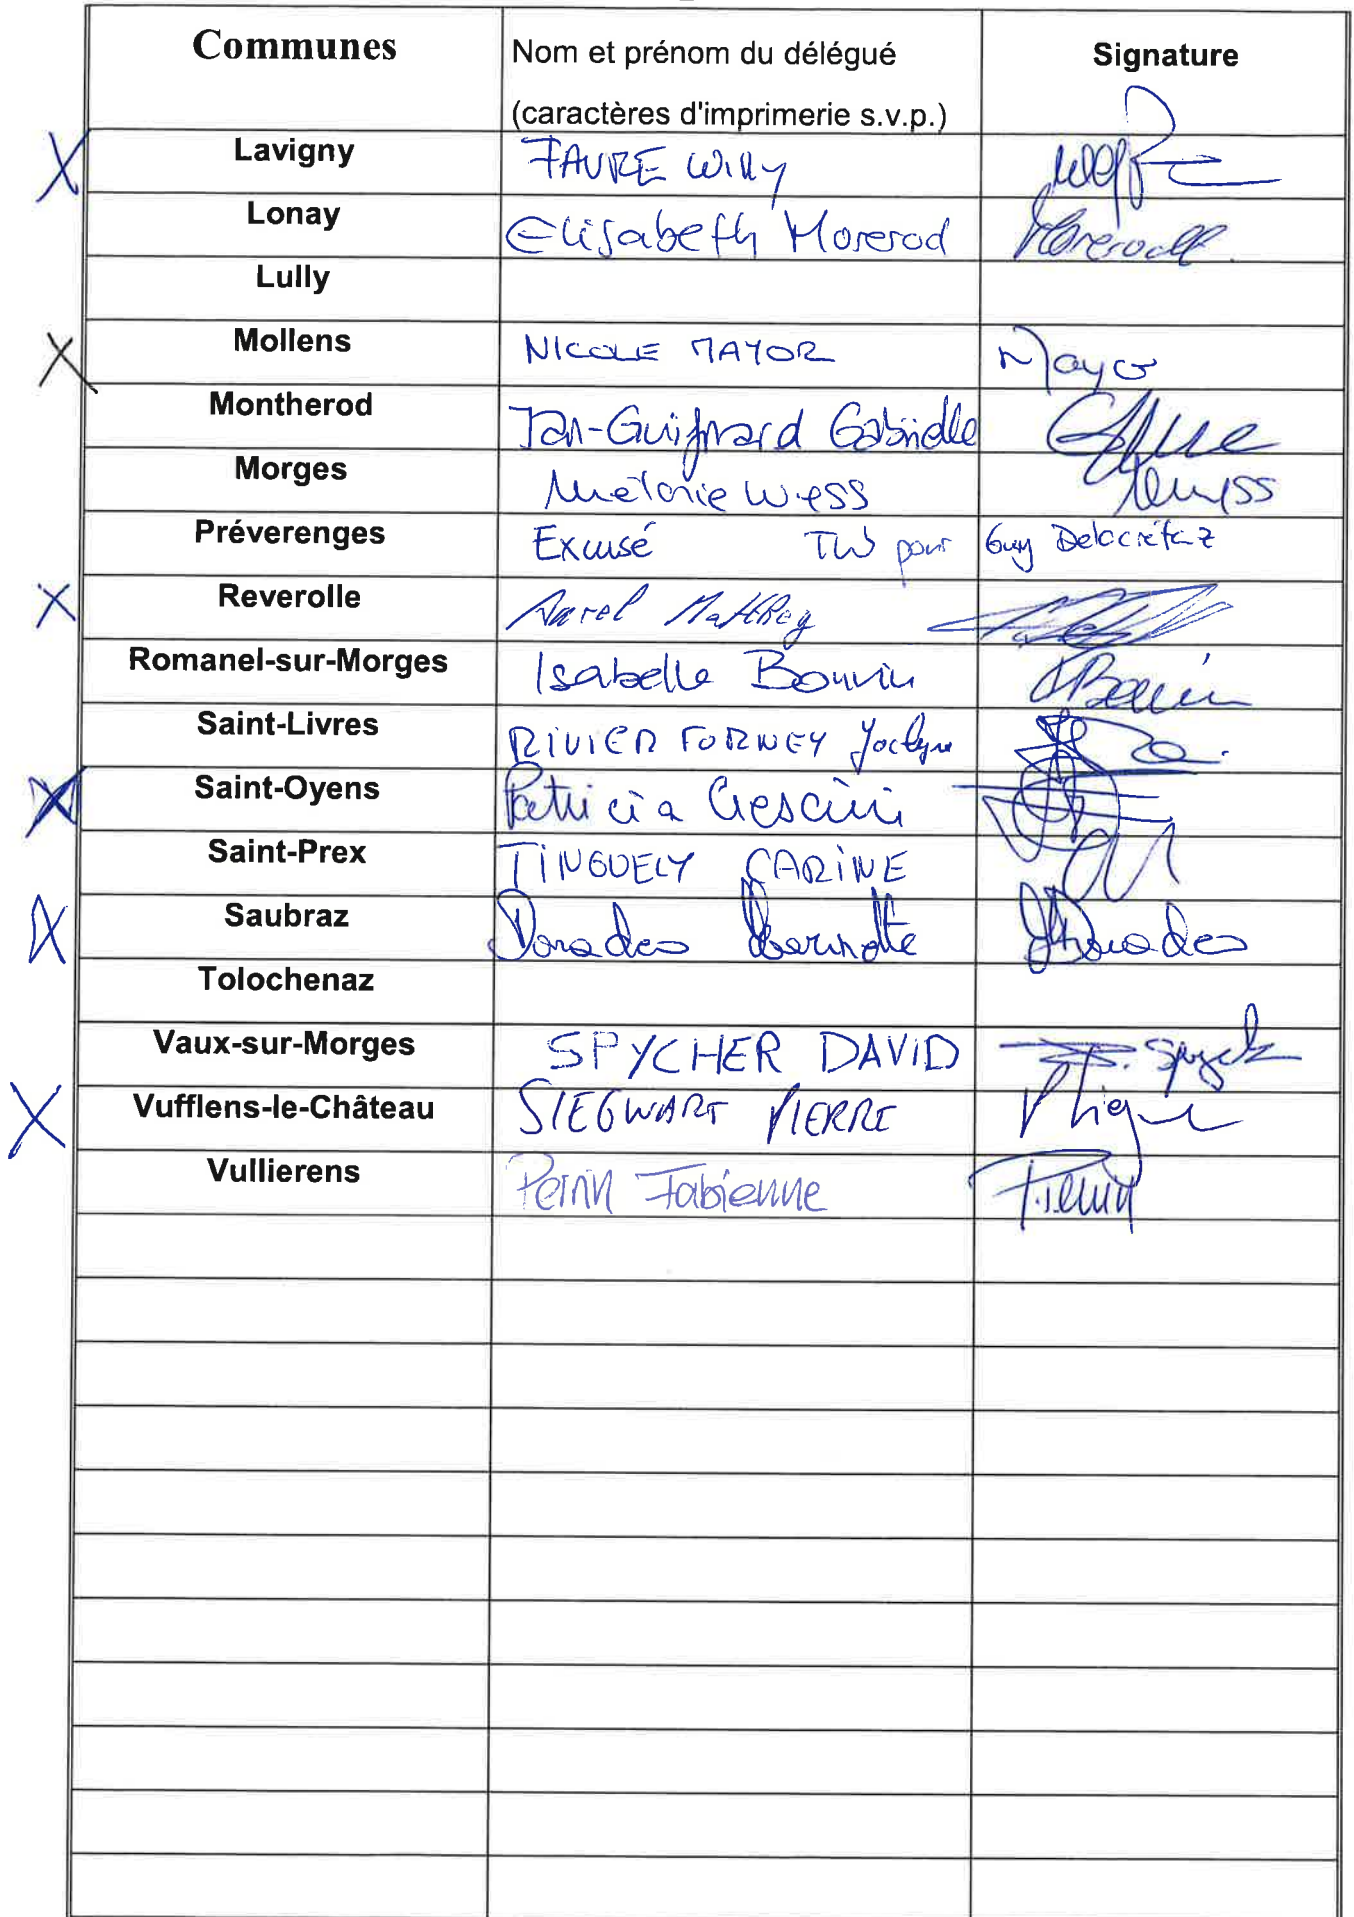 Communes Nom et prénom du délégué Signature
(caractères d'imprimerie s.v.p.)
X Lavigny FAVRE Willy
Lonay Elisabeth Morerod Morerod
Lully
X Mollens NICOLE MAYOR Mayor
Montherod Jan-Guignard Gabrielle
Morges Mélanie Wyss Wyss
Préverenges Excusé TW pour Guy Delacrétaz
X Reverolle Aurel Matthey
Romanel-sur-Morges Isabelle Bonvin Bonvin
Saint-Livres RIVIER FORNEY Jocelyne
X Saint-Oyens Patricia Crescini
Saint-Prex TINGUELY CARINE
X Saubraz Donadeo Donadeo
Tolochenaz
Vaux-sur-Morges SPYCHER DAVID D. Spycher
X Vufflens-le-Château SIEGWART PIERRE
Vullierens Perrin Fabienne F. Perrin